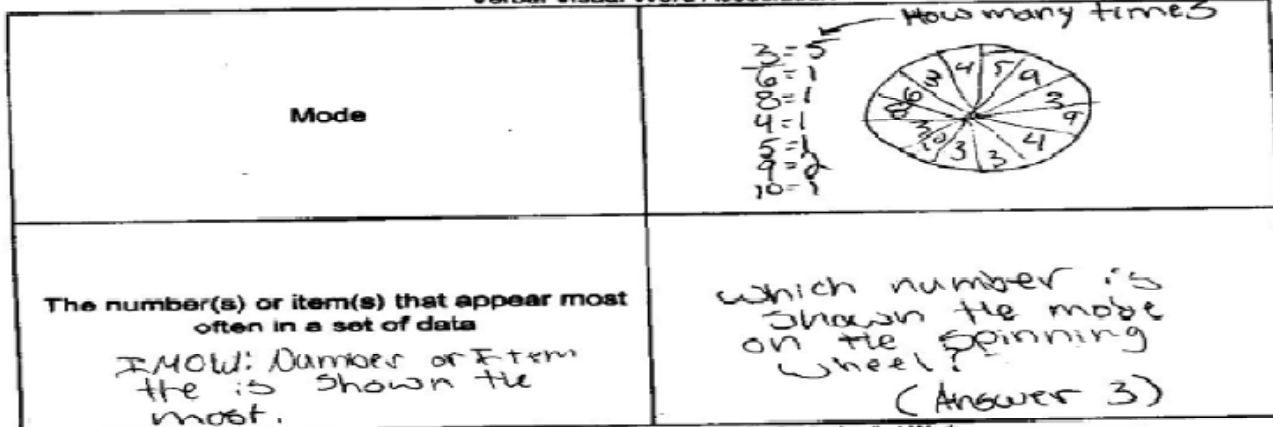 How many times
3=5
6=1
8=1
4=1
5=1
9=2
10=1
3 4 5 9
3
9
4
3
3
Mode
The number(s) or item(s) that appear most
often in a set of data
IMOW: Number or Item
the is shown the
most.
which number is
shown the
on the spinning
wheel?
(Answer 3)